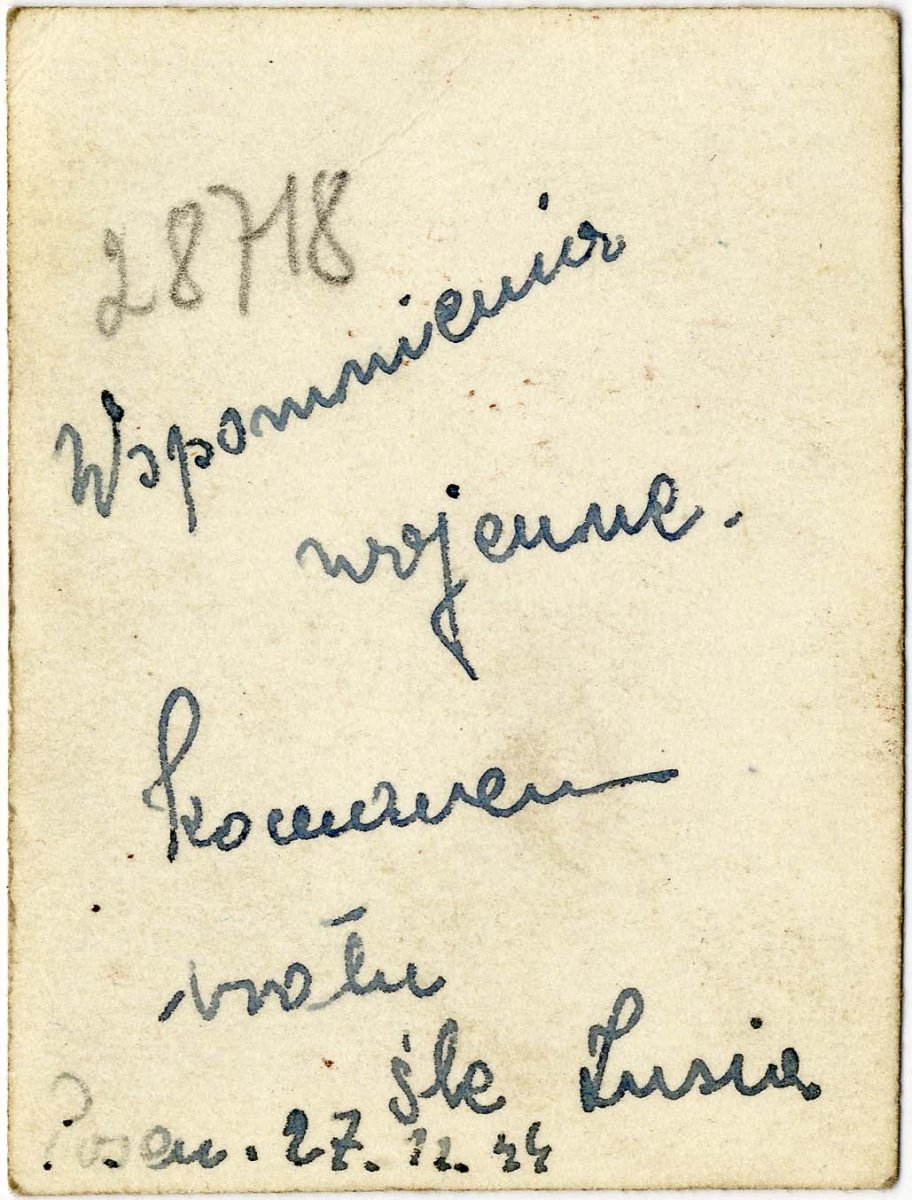 28718
Wspomnienia
wojenne.
śle Lusia
Posen. 27. 12. 44